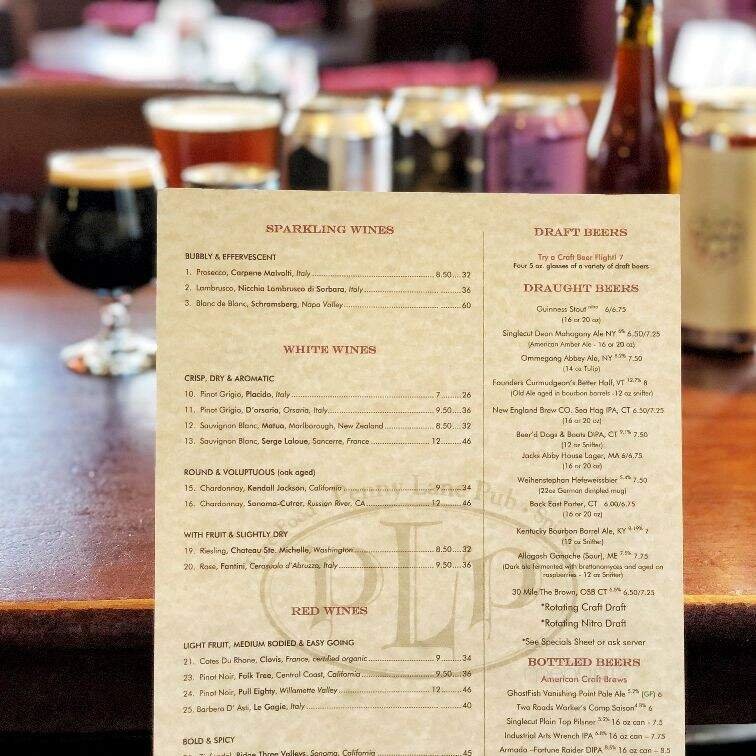 SPARKLING WINES
BUBBLY & EFFERVESCENT
1. Prosecco, Carpene Malvolti, Italy 8.50....32
2. Lambrusco, Nicchia Lambrusco di Sorbara, Italy 36
3. Blanc de Blanc, Schramsberg, Napa Valley 60
WHITE WINES
CRISP, DRY & AROMATIC
10. Pinot Grigio, Placido, Italy 7 26
11. Pinot Grigio, D'orsaria, Orsaria, Italy 9.50....36
12. Sauvignon Blanc, Matua, Marlborough, New Zealand 8.50....32
13. Sauvignon Blanc, Serge Laloue, Sancerre, France 12 46
ROUND & VOLUPTUOUS (oak aged)
15. Chardonnay, Kendall Jackson, California 9 34
16. Chardonnay, Sonoma-Cutrer, Russian River, CA 12 46
WITH FRUIT & SLIGHTLY DRY
19. Riesling, Chateau Ste. Michelle, Washington 8.50....32
20. Rose, Fantini, Cerasuolo d'Abruzzo, Italy 9.50....36
RED WINES
LIGHT FRUIT, MEDIUM BODIED & EASY GOING
21. Cotes Du Rhone, Clovis, France, certified organic 9 34
23. Pinot Noir, Folk Tree, Central Coast, California 9.50....36
24. Pinot Noir, Pull Eighty, Willamette Valley 12 46
25. Barbera D' Asti, Le Gagie, Italy 40
BOLD & SPICY
Ridge Three Valleys, Sonoma, California 45
Penny Lane Pub
PLP
DRAFT BEERS
Try a Craft Beer Flight! 7
Four 5 oz. glasses of a variety of draft beers
DRAUGHT BEERS
Guinness Stout nitro 6/6.75
(16 or 20 oz)
Singlecut Dean Mahogany Ale NY 6% 6.50/7.25
(American Amber Ale - 16 or 20 oz)
Ommegang Abbey Ale, NY 8.2% 7.50
(14 oz Tulip)
Founders Curmudgeon's Better Half, VT 12.7% 8
(Old Ale aged in bourbon barrels -12 oz snifter)
New England Brew CO. Sea Hag IPA, CT 6.50/7.25
(16 or 20 oz)
Beer'd Dogs & Boats DIPA, CT 9.1% 7.50
(12 oz Snifter)
Jacks Abby House Lager, MA 6/6.75
(16 or 20 oz)
Weihenstephan Hefeweissbier 5.4% 7.50
(22oz German dimpled mug)
Back East Porter, CT 6.00/6.75
(16 or 20 oz)
Kentucky Bourbon Barrel Ale, KY 8.19% 7
(12 oz Snifter)
Allagash Ganache (Sour), ME 7.5% 7.75
(Dark ale fermented with brettanomyces and aged on
raspberries - 12 oz Snifter)
30 Mile The Brown, OSB CT 5.8% 6.50/7.25
*Rotating Craft Draft
*Rotating Nitro Draft
*See Specials Sheet or ask server
BOTTLED BEERS
American Craft Brews
GhostFish Vanishing Point Pale Ale 5.2% (GF) 6
Two Roads Worker's Comp Saison 4.8% 6
Singlecut Plain Top Pilsner 5.2% 16 oz can - 7.5
Industrial Arts Wrench IPA 6.8% 16 oz can – 7.75
Armada –Fortune Raider DIPA 8.5% 16 oz can – 8.5